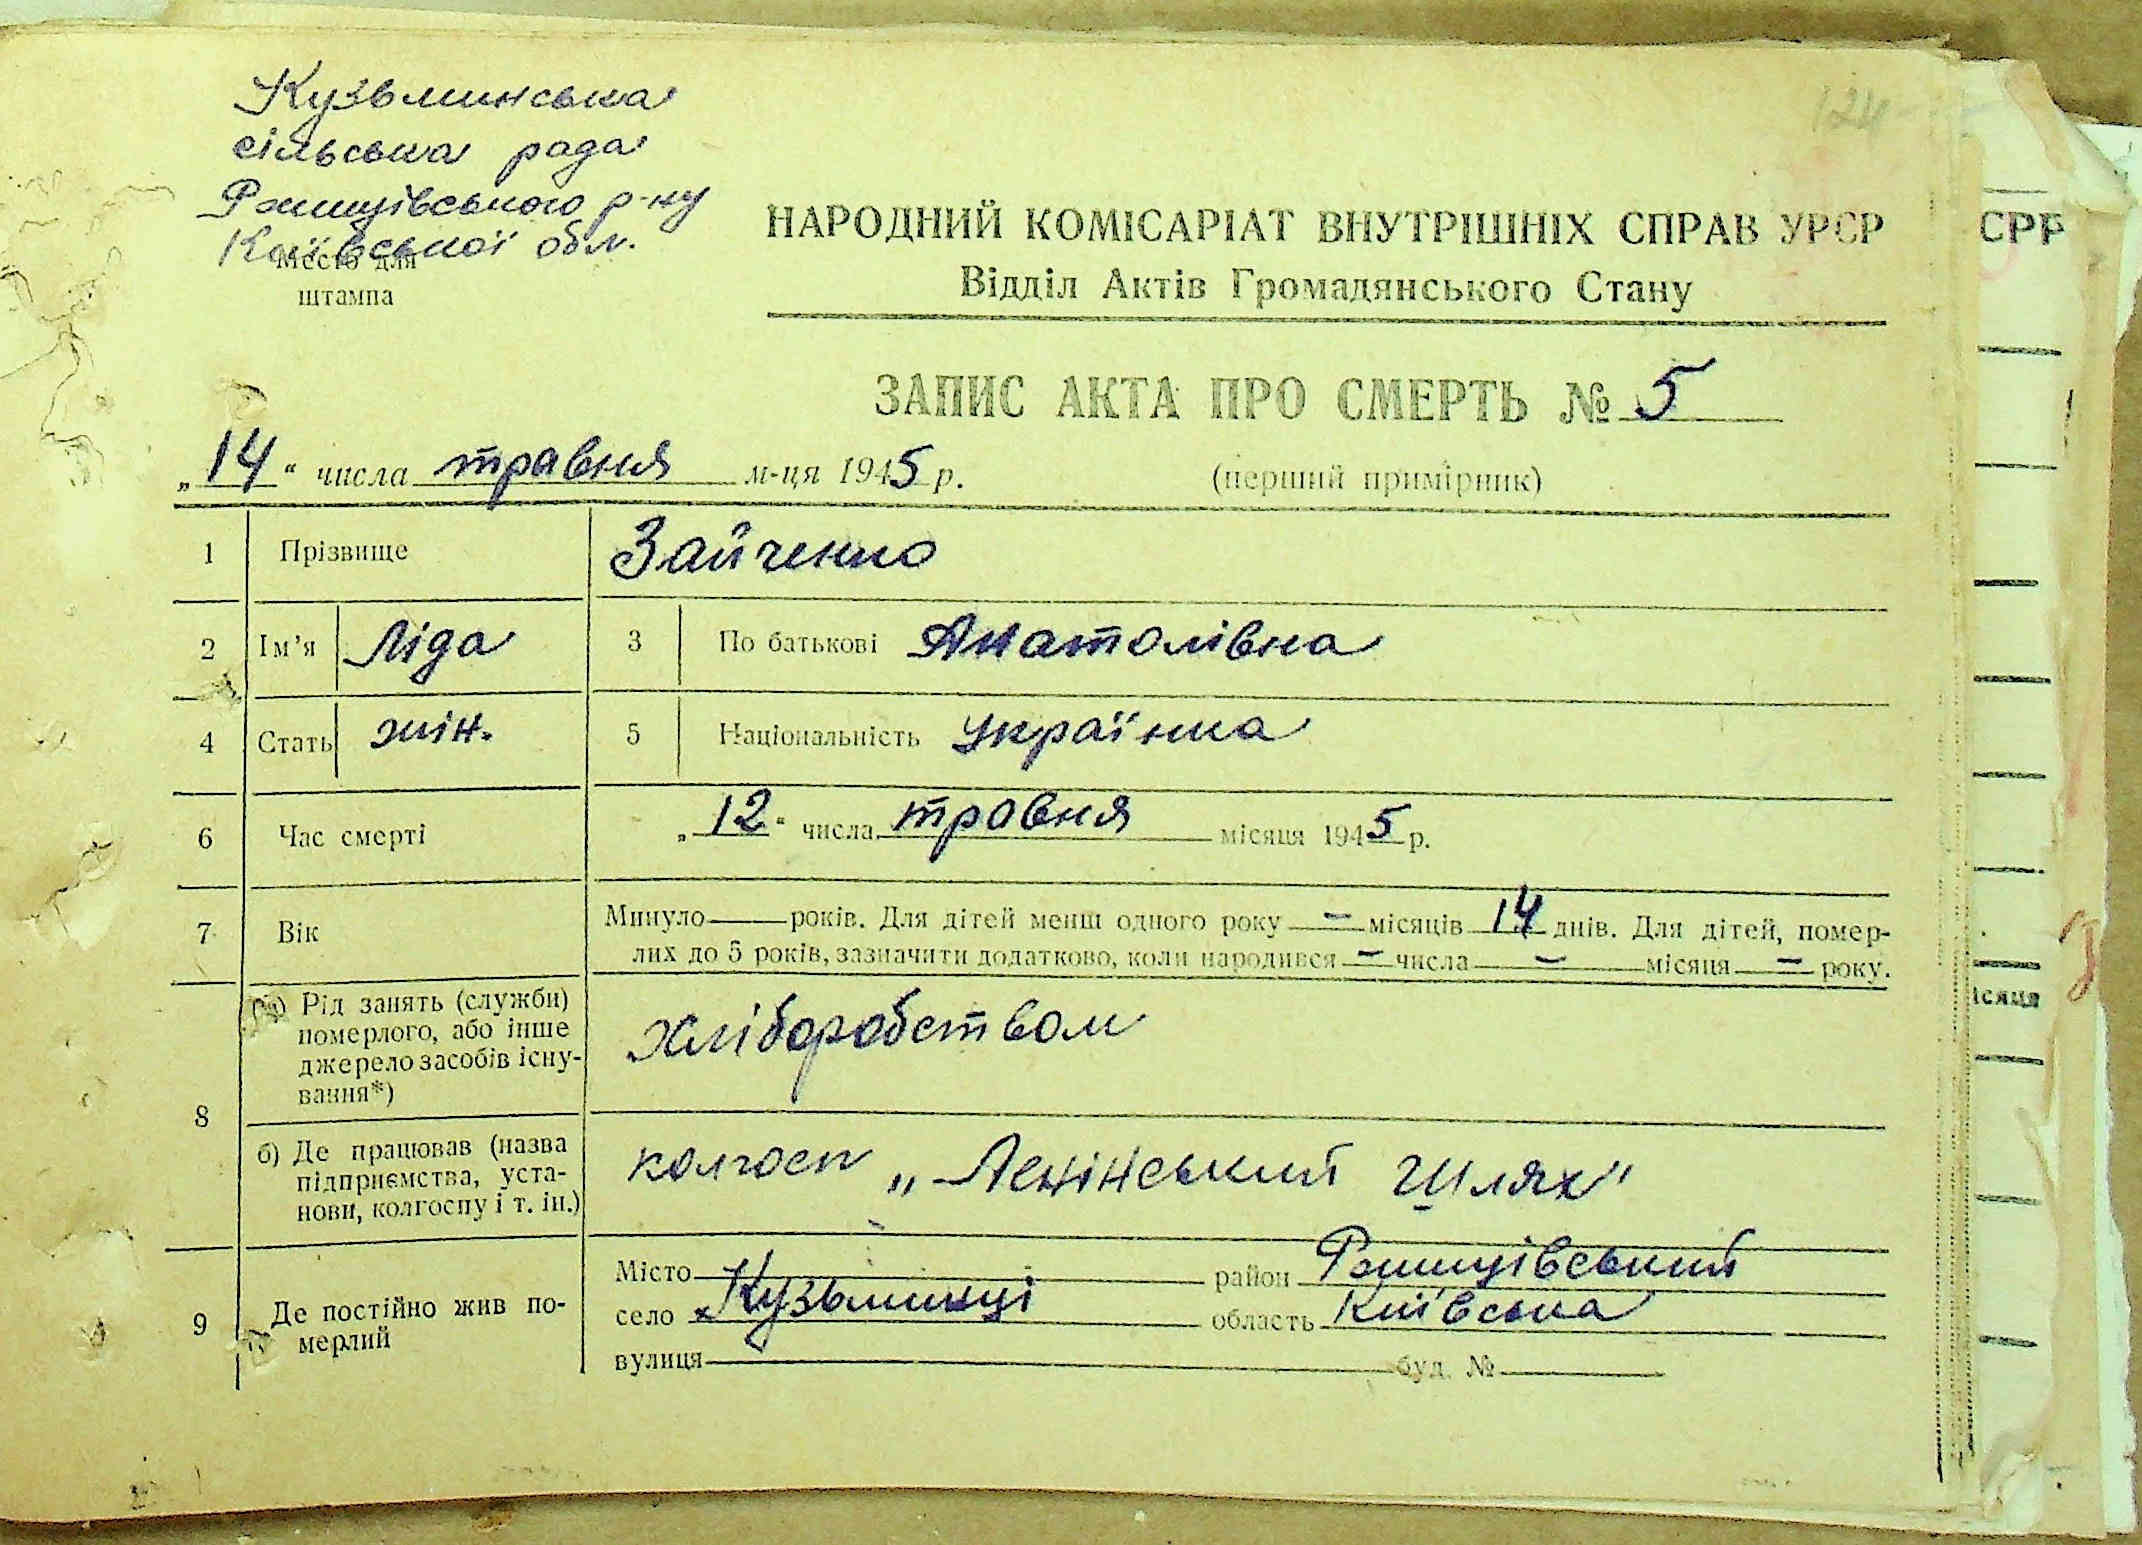 124
Кузьминська
сільська рада
Рамиуівського р-ну
Київської обл.
Место для
штампа
НАРОДНИЙ КОМІСАРІАТ ВНУТРІШНІХ СПРАВ УРСР
СРР
Відділ Актів Громадянського Стану
ЗАПИС АКТА ПРО СМЕРТЬ № 5
„14“ числа травня м-ця 1945 р.
(перший примірник)
1 Прізвище Зайченко
2 Ім’я Ліда 3 По батькові Анатолівна
4 Стать жін. 5 Національність українка
6 Час смерті „12“ числа травня місяця 1945 р.
7 Вік Минуло — років. Для дітей менш одного року — місяців 14 днів. Для дітей, помер-
лих до 5 років, зазначити додатково, коли народився — числа — місяця — року.
8 а) Рід занять (служби)
померлого, або інше
джерело засобів існу-
вання*)
хліборобством
б) Де працював (назва
підприємства, уста-
нови, колгоспу і т. ін.)
колгосп „Ленінський Шлях“
9 Де постійно жив по-
мерлий
Місто район
село Кузьминці область Київська
вулиця буд. №
ісяця